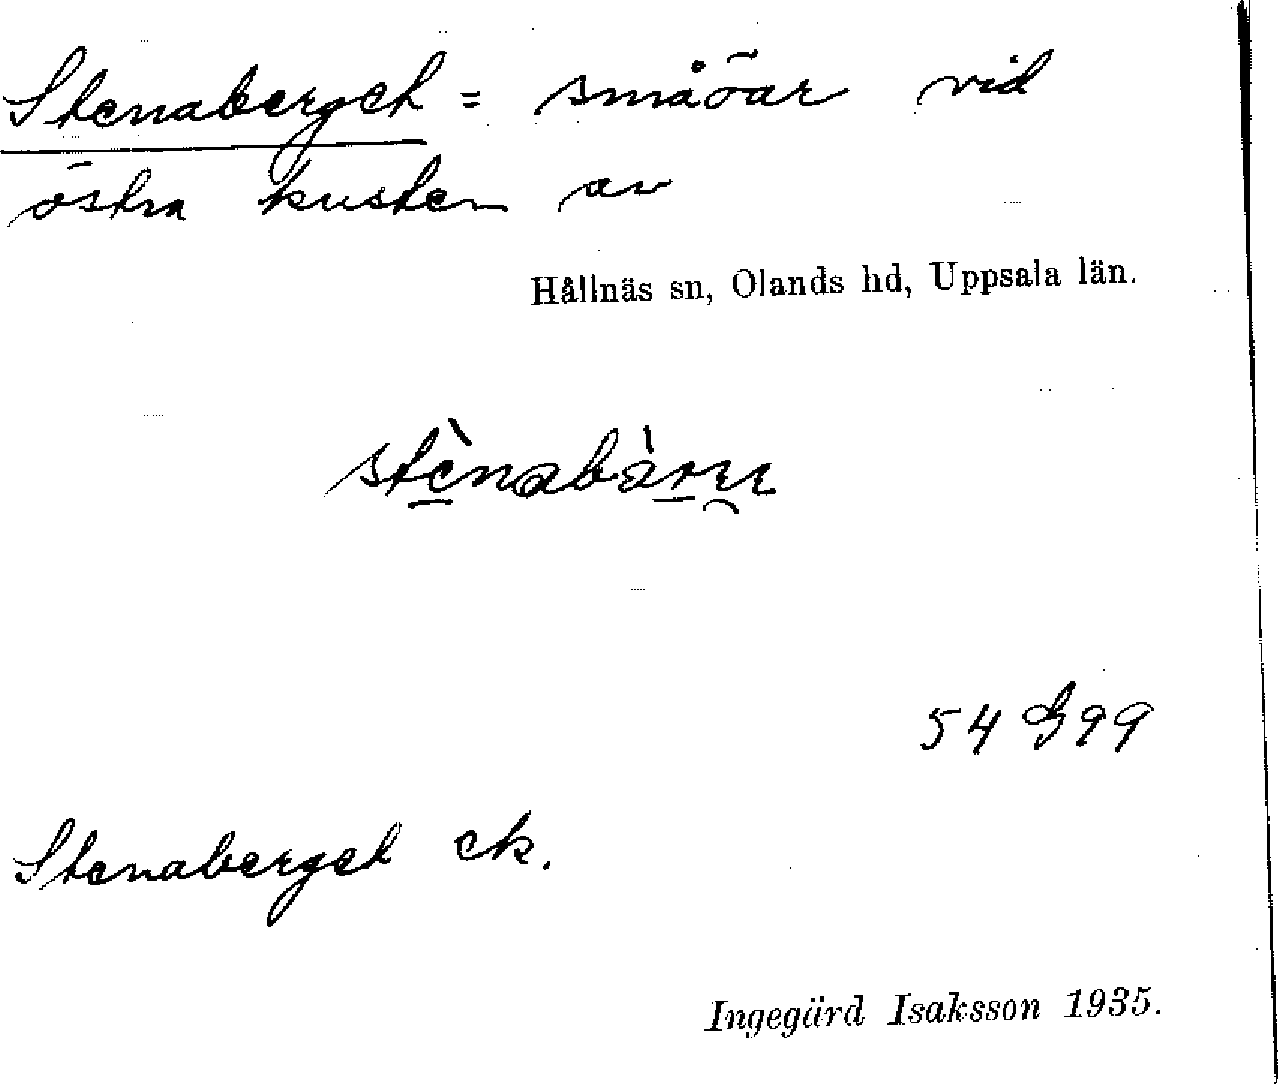 Stenaberget = småöar vid
östra kusten av
Hållnäs sn, Olands hd, Uppsala län.
54 G 99
Stenaberget ek.
Ingegärd Isaksson 1935.